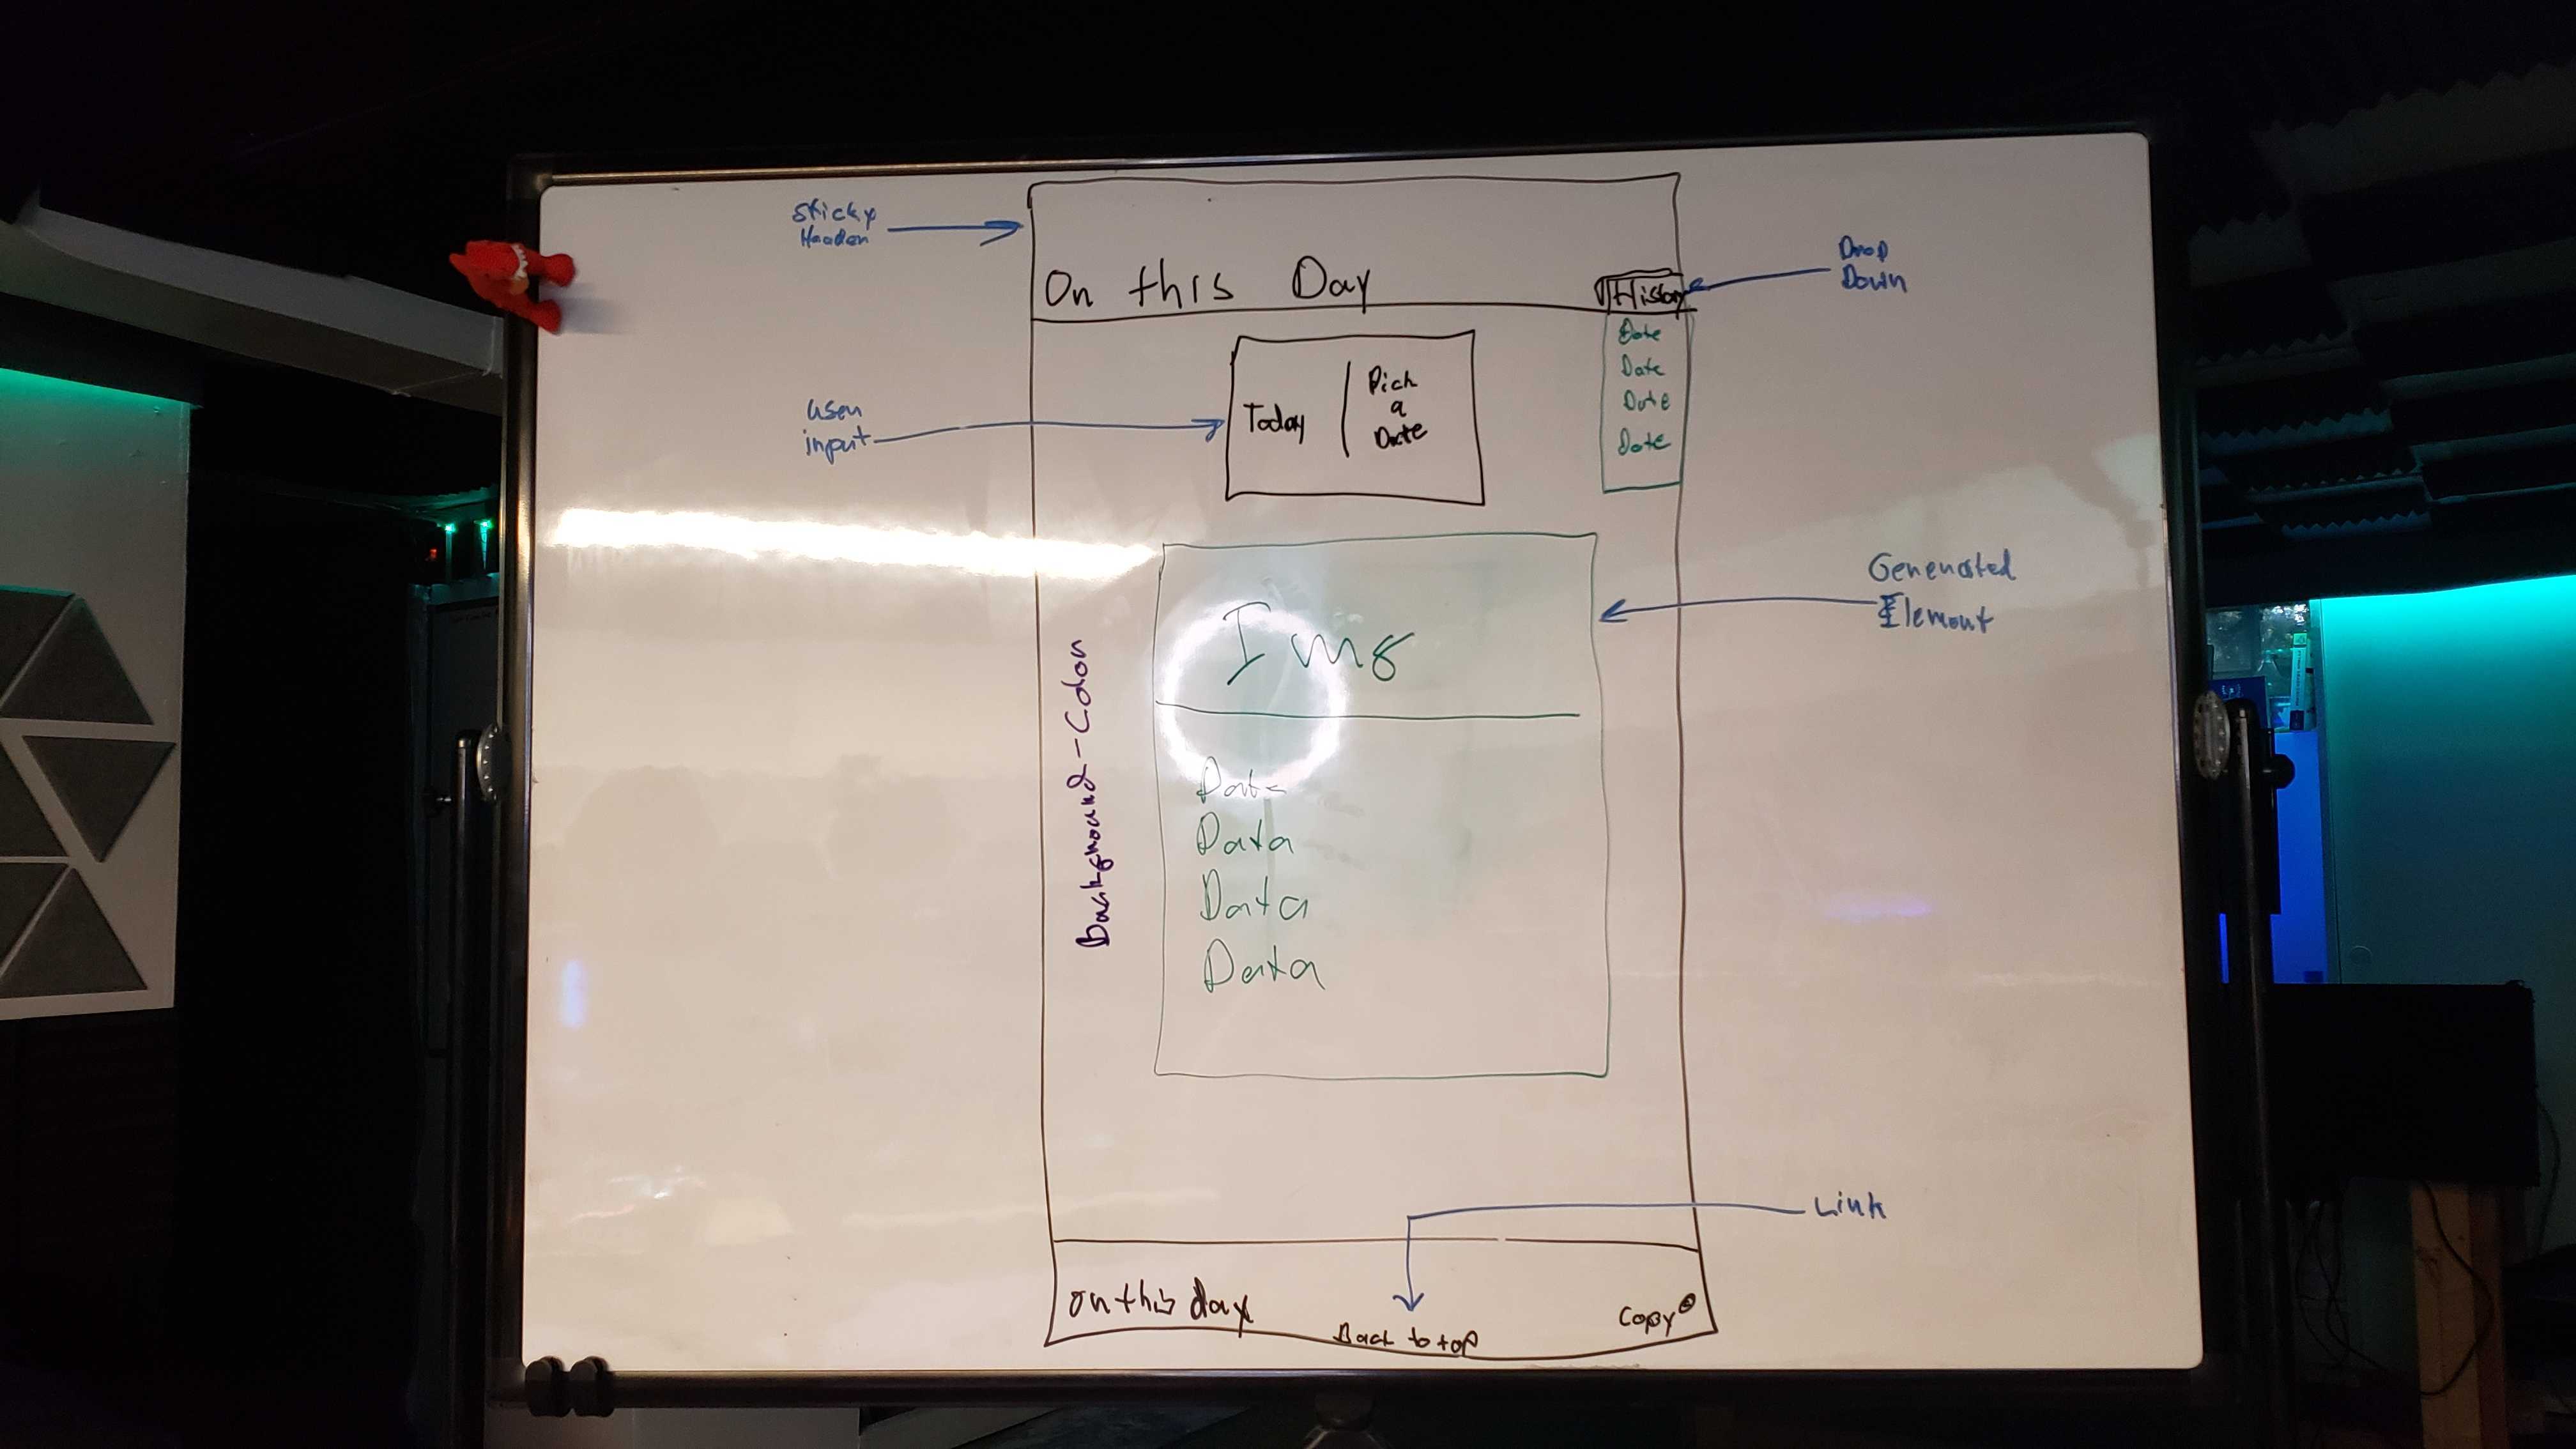 Sticky
Header
On this Day
History
Drop
Down
Date
Date
Date
Date
user
input
Today
Pick
a
Date
Img
Generated
Element
Background-Color
Data
Data
Data
Data
Link
on this day
Back to top
Copy©